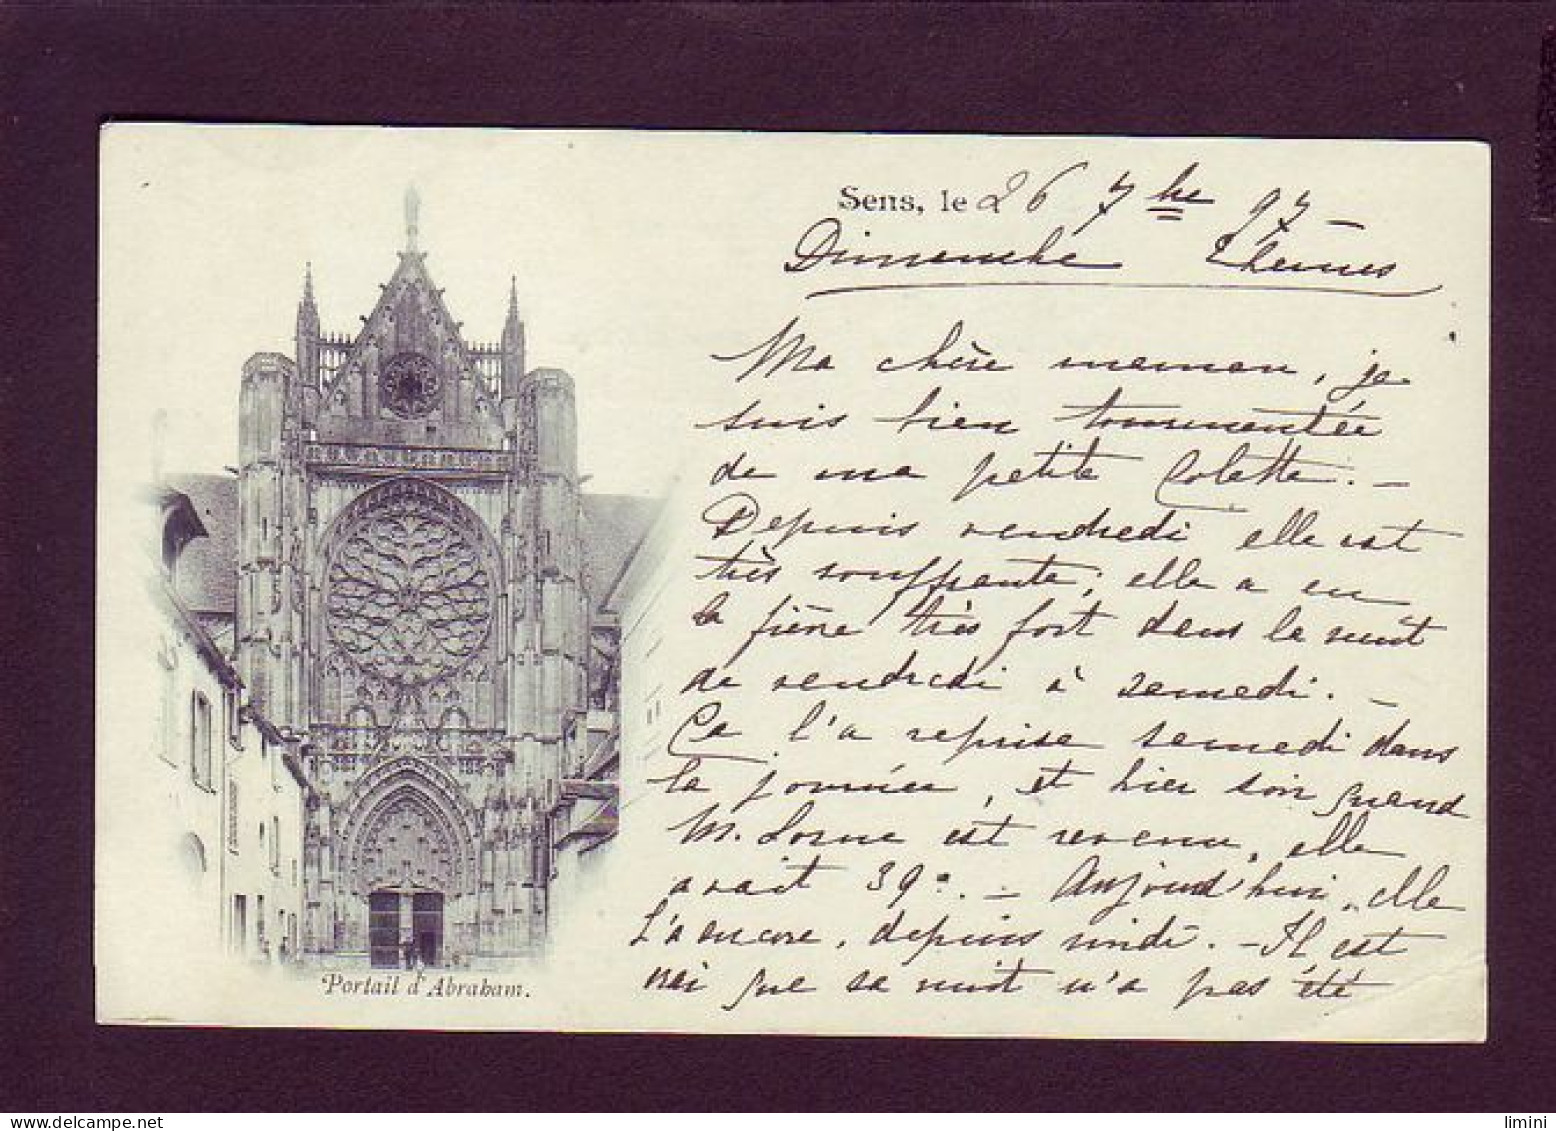 Sens, le 26 7bre 97 –
Dimanche
Ma chère maman, je
suis bien tourmentée
de ma petite Colette. –
Depuis vendredi elle est
très souffrante; elle a eu
la fièvre très fort dans la nuit
de vendredi à samedi. –
Ça l'a reprise samedi dans
la journée, et hier soir quand
M. Lorne est revenu, elle
avait 39°. – Aujourd'hui, elle
l'a encore, depuis midi. – Il est
vrai que sa nuit n'a pas été
Portail d'Abraham.
delcampe.net
limini